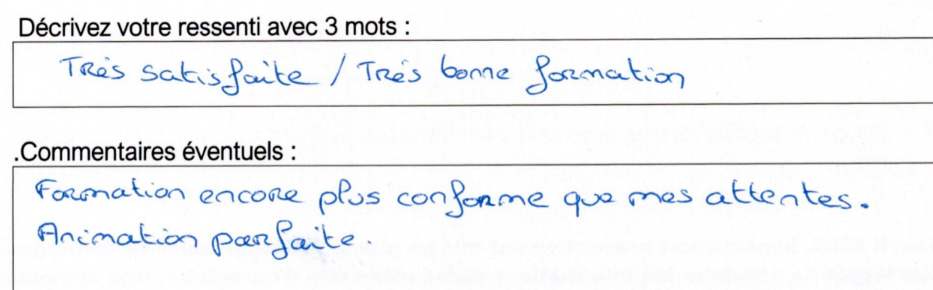 Décrivez votre ressenti avec 3 mots :
Très satisfaite / Très bonne formation
.Commentaires éventuels :
Formation encore plus conforme que mes attentes.
Animation parfaite.